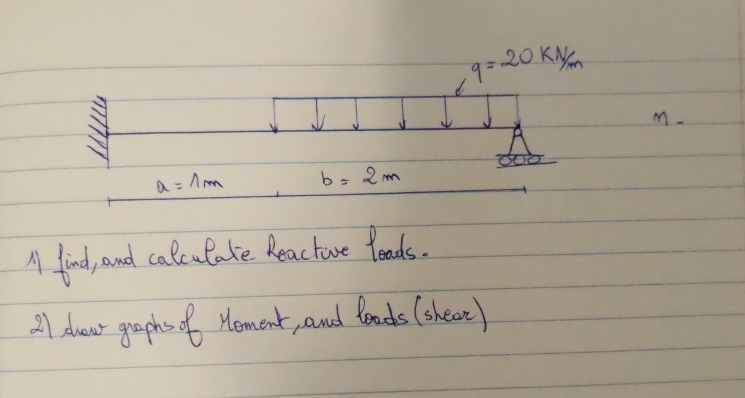 q = 20 KN/m
n -
a = 1m
b = 2m
1) find, and calculate Reactive loads.
2) draw graphs of Moment, and loads (shear)